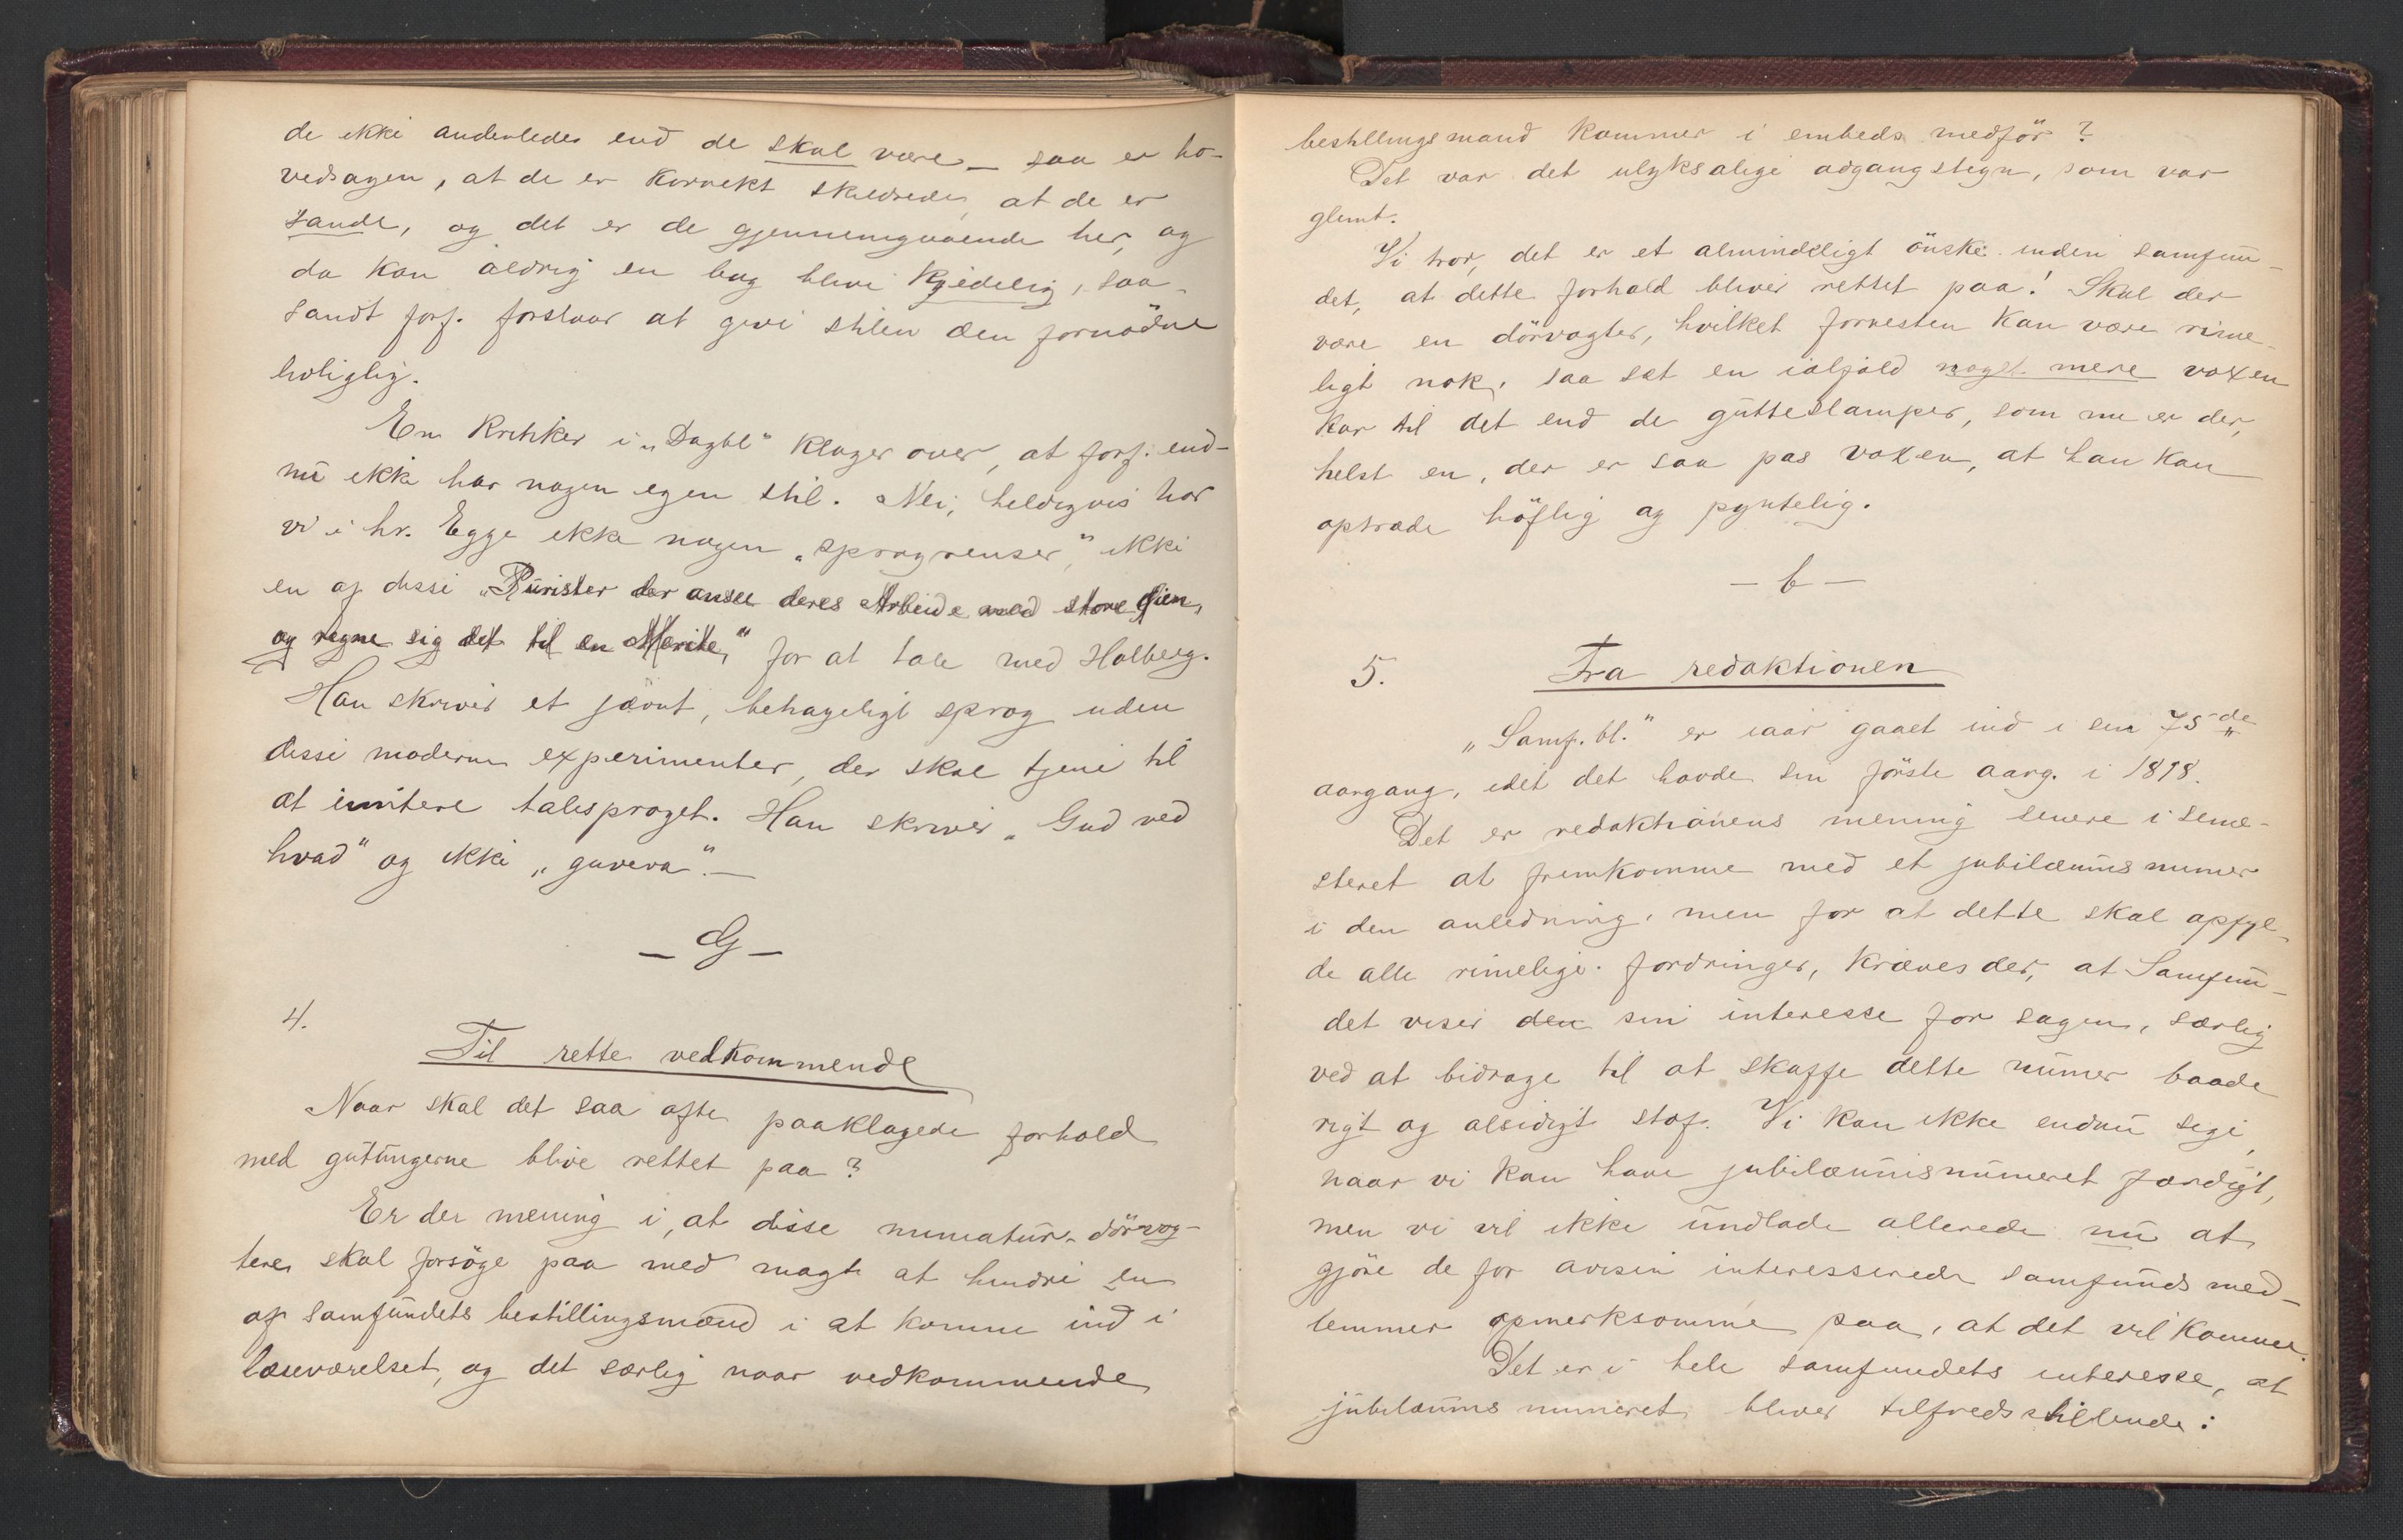 de ikke anderledes end de skal være – saa er ho-
vedsagen, at de er korrekt skildrede, at de er
sande, og det er de gjennemgaaende her, og
da kan aldrig en bog blive kjedelig, saa-
sandt forf. forstaar at give stilen den fornødne
livlighg.
En kritiker i „Dagbl" klager over, at forf. end-
nu ikke har nogen egen stil. Nei, heldigvis har
vi i hr. Egge ikke nogen „sprogrenser", ikke
en af disse „Purister der ansee deres Arbeide med store Øien,
og regne sig det til en Merite," for at tale med Holberg.
Han skriver et jævnt, behageligt sprog uden
disse moderne experimenter, der skal tjene til
at imitere talesproget. Han skriver „Gud ved
hvad" og ikke „guveva". –
– G –
4.
Til rette vedkommende
Naar skal det saa ofte paaklagede forhold
med guttungerne blive rettet paa?
Er der mening i, at disse miniatur-dörvog-
tere skal forsöge paa med magt at hindre en
af samfundets bestillingsmænd i at komme ind i
læseværelset, og det særlig naar vedkommende
bestillingsmand kommer i embeds medför?
Det var det ulyksalige adgangstegn, som var
glemt.
Vi tror, det er et almindeligt önske inden samfun-
det, at dette forhold bliver rettet paa! Skal der
være en dörvogter, hvilket forresten kan være rime-
ligt nok, saa sæt en ialfald noget mere voxen
kar til det end de gutteslamper, som nu er der,
helst en, der er saa pas voxen, at han kan
optræde höflig og pyntelig.
– b –
5. Fra redaktionen
„Samf. bl." er iaar gaaet ind i sin 75de
aargang, idet det havde sin förste aarg. i 1818.
Det er redaktionens mening senere i seme-
steret at fremkomme med et jubilæumsnumer
i den anledning, men for at dette skal opfyl-
de alle rimelige fordringer, kræves der, at Samfun-
det viser den sin interesse for sagen, særlig
ved at bidrage til at skaffe dette numer baade
rigt og alsidigt stof. Vi kan ikke endnu sige,
naar vi kan have jubilæumsnumeret færdigt,
men vi vil ikke undlade allerede nu at
gjöre de for avisen interesserede samfunds med-
lemmer opmerksomme paa, at det vil komme.
Det er i hele samfundets interesse, at
jubilæums numeret bliver tilfredsstillende: